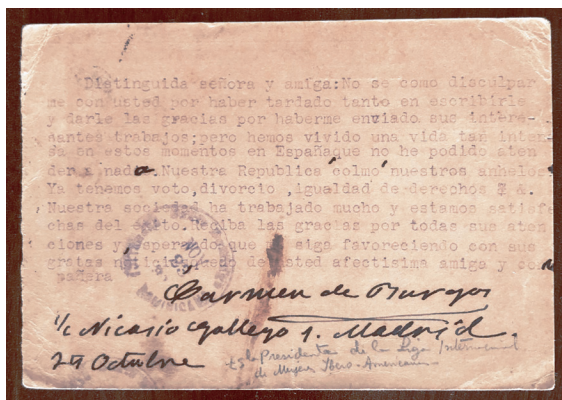 Distinguida señora y amiga:No se como disculpar
me con usted por haber tardado tanto en escribirle
y darle las gracias por haberme enviado sus intere-
santes trabajos;pero hemos vivido una vida tan inten
sa en estos momentos en Españaque no he podido aten
der a nada.Nuestra Republica colmó nuestros anhelos
Ya tenemos voto,divorcio ,igualdad de derechos &.
Nuestra sociedad ha trabajado mucho y estamos satisfe
chas del exito.Reciba las gracias por todas sus aten
ciones y esperando que siga favoreciendo con sus
gratas noticias quedo de usted afectisima amiga y com
pañera
Carmen de Burgos
1/c Nicasio Gallego 1. Madrid.
Octubre
es la Presidenta de la Liga Internacional
de Mujeres Ibero-Americanas